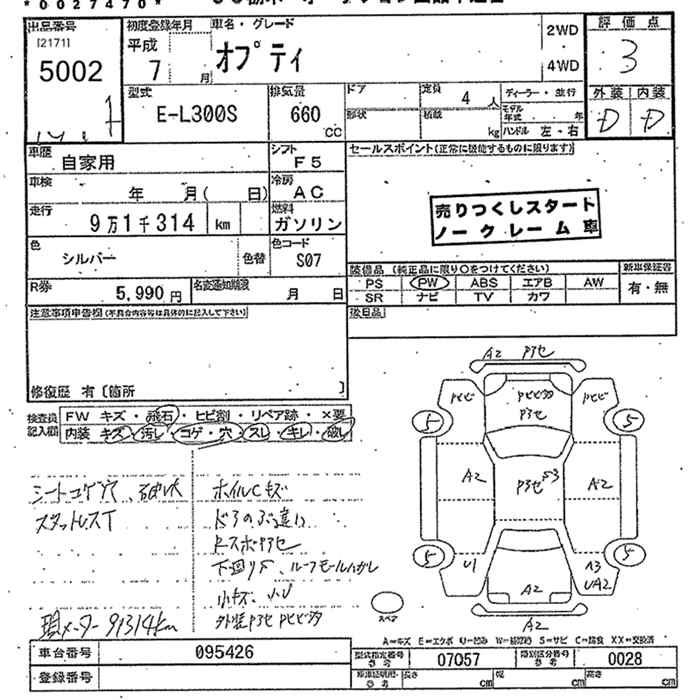 *0027470*
出品番号
[2171]
5002
初度登録年月
平成
7 月
車名・グレード
オプティ
2WD
4WD
評価点
3
外装 内装
D D
型式
E-L300S
排気量
660
CC
ドア
形状
定員
4 人
積載
kg
ディーラー・並行
モデル年式 年
ハンドル 左・右
車歴
自家用
シフト
F5
車検
年 月( 日)
冷房
AC
走行
9万1千314 km
燃料
ガソリン
色
シルバー
色替
色コード
S07
R券
5,990 円
名変通知期限
月 日
セールスポイント(正常に機能するものに限ります)
売りつくしスタート
ノークレーム車
装備品(純正品に限り○をつけてください)
PS PW ABS エアB AW
SR ナビ TV カワ
新車保証書
有・無
後日品
注意事項申告欄(不具合内容等は具体的に記入して下さい)
修復歴 有〔箇所 〕
検査員記入欄
FW キズ・飛石・ヒビ割・リペア跡・×要
内装 キズ・汚レ・コゲ・穴・スレ・キレ・破レ
シートコゲ穴、破レ大
スタットレスT
ホイルCキズ
ドアのぶ違い
下廻りS、ルーフモールハガレ
現メーター 91314km
A2
A2
A2
A2
A2
U1
A3
UA2
5 5
5 5
スペア
A=キズ E=エクボ U=凹み W=補修跡 S=サビ C=腐食 XX=交換済
車台番号
095426
登録番号
型式指定番号
参考
07057
類別区分番号
参考
0028
長さ cm
幅 cm
高さ cm